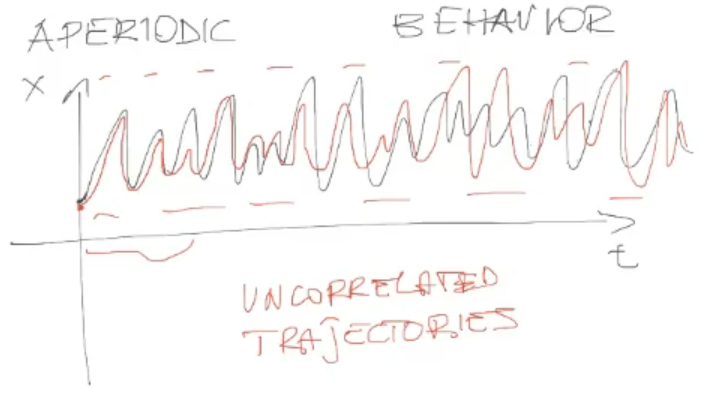 APERIODIC BEHAVIOR
X
t
UNCORRELATED
TRAJECTORIES